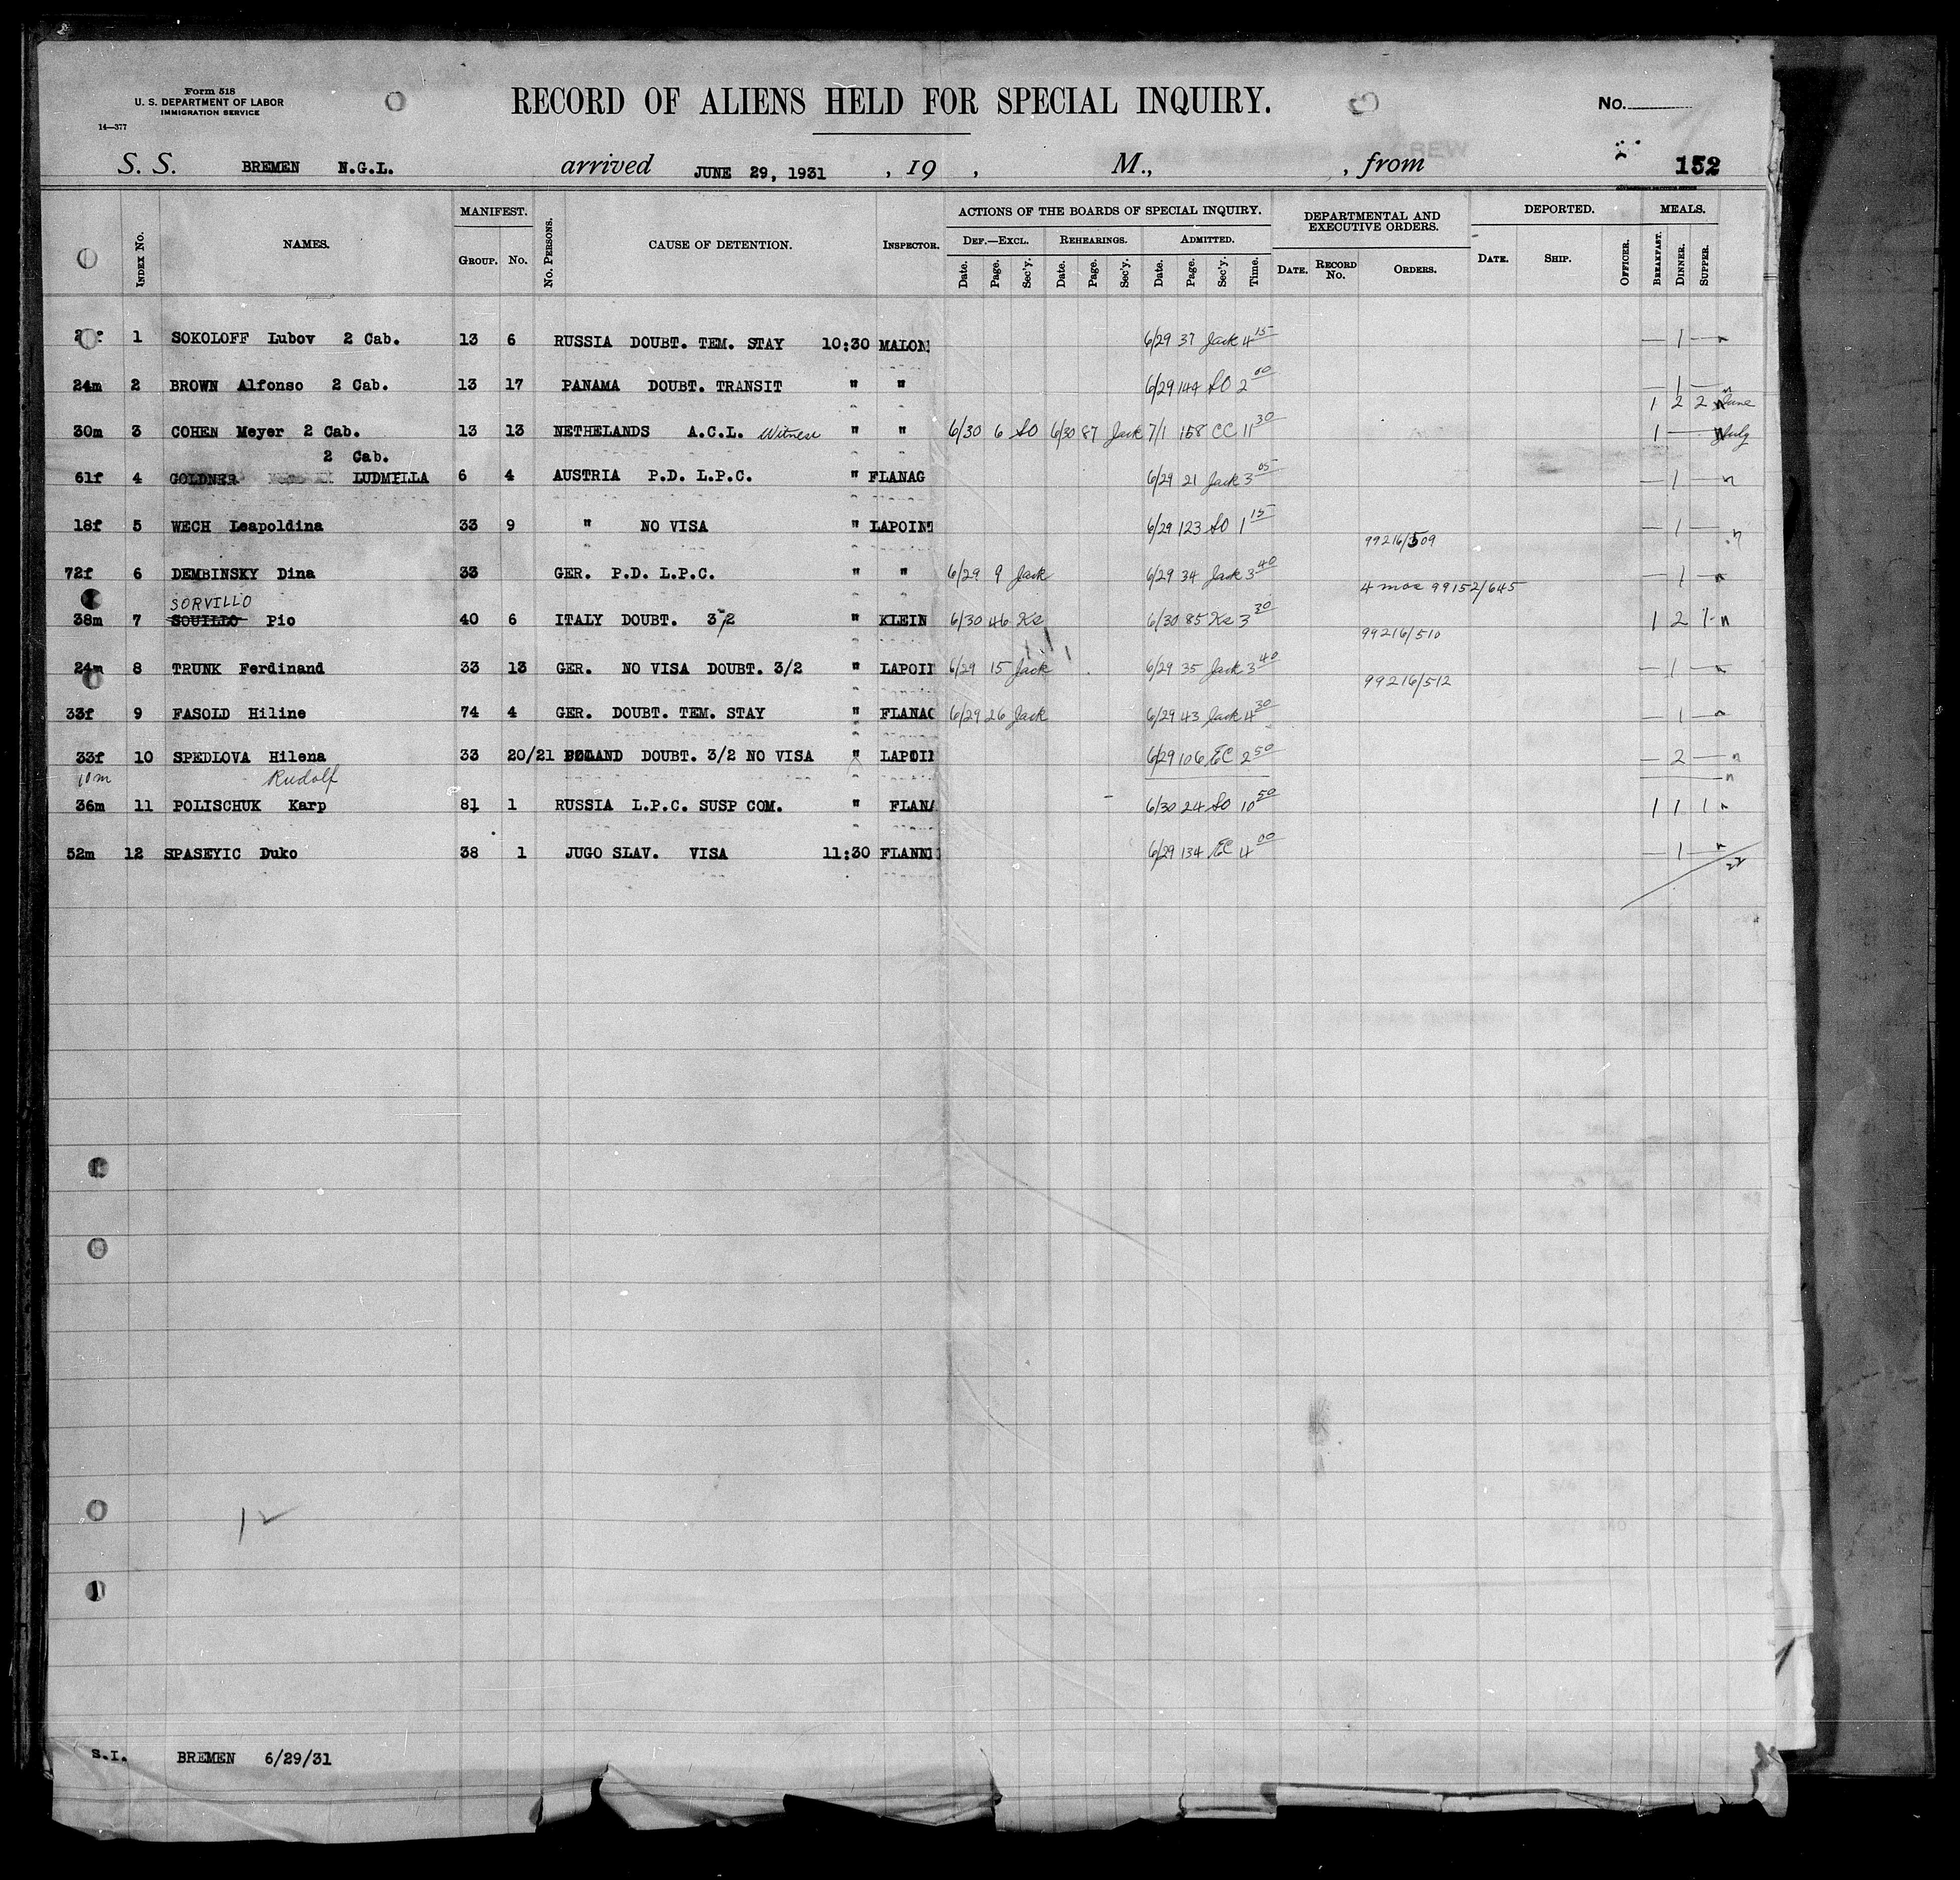 Form 518
U. S. DEPARTMENT OF LABOR
IMMIGRATION SERVICE
14—377
RECORD OF ALIENS HELD FOR SPECIAL INQUIRY.
No.
S. S. BREMEN N.G.L. arrived JUNE 29, 1931 , 19 , M., , from 152
CREW
INDEX No. NAMES. MANIFEST. GROUP. No. No. PERSONS. CAUSE OF DETENTION. INSPECTOR. ACTIONS OF THE BOARDS OF SPECIAL INQUIRY. DEF.—EXCL. Date. Page. Sec'y. REHEARINGS. Date. Page. Sec'y. ADMITTED. Date. Page. Sec'y. Time. DEPARTMENTAL AND EXECUTIVE ORDERS. DATE. RECORD No. ORDERS. DEPORTED. DATE. SHIP. OFFICER. MEALS. BREAKFAST. DINNER. SUPPER.
1 SOKOLOFF Lubov 2 Cab. 13 6 RUSSIA DOUBT. TEM. STAY 10:30 MALON 6/29 37 Jack 4 15 — 1 — n
24m 2 BROWN Alfonso 2 Cab. 13 17 PANAMA DOUBT. TRANSIT " " 6/29 144 SO 2 00 — 1 — n
1 2 2 n June
30m 3 COHEN Meyer 2 Cab. 13 13 NETHELANDS A.C.L. Witness " " 6/30 6 SO 6/30 87 Jack 7/1 158 CC 11 30 1 — July
2 Cab.
61f 4 GOLDNER LUDMILLA 6 4 AUSTRIA P.D. L.P.C. " FLANAG 6/29 21 Jack 3 05 — 1 — n
18f 5 WECH Leapoldina 33 9 " NO VISA " LAPOINT 6/29 123 SO 1 15 — 1 — n
99216/509
72f 6 DEMBINSKY Dina 33 GER. P.D. L.P.C. " " 6/29 9 Jack 6/29 34 Jack 3 40 — 1 — n
4 mos 99152/645
SORVILLO
38m 7 SOUILLO Pio 40 6 ITALY DOUBT. 3/2 " KLEIN 6/30 46 Ks 6/30 85 Ks 3 30 1 2 1 n
99216/510
24m 8 TRUNK Ferdinand 33 13 GER. NO VISA DOUBT. 3/2 " LAPOII 6/29 15 Jack 6/29 35 Jack 3 40 — 1 — n
99216/512
33f 9 FASOLD Hiline 74 4 GER. DOUBT. TEM. STAY " FLANAG 6/29 26 Jack 6/29 43 Jack 4 30 — 1 — n
33f 10 SPEDLOVA Hilena 33 20/21 POLAND DOUBT. 3/2 NO VISA " LAPOII 6/29 106 EC 2 50 — 2 — n
10m Rudolf n
36m 11 POLISCHUK Karp 81 1 RUSSIA L.P.C. SUSP COM. " FLANA 6/30 24 SO 10 50 1 1 1 n
52m 12 SPASEYIC Duko 38 1 JUGO SLAV. VISA 11:30 FLANNI 6/29 134 EC 4 00 — 1 — n
22
12
S.I. BREMEN 6/29/31